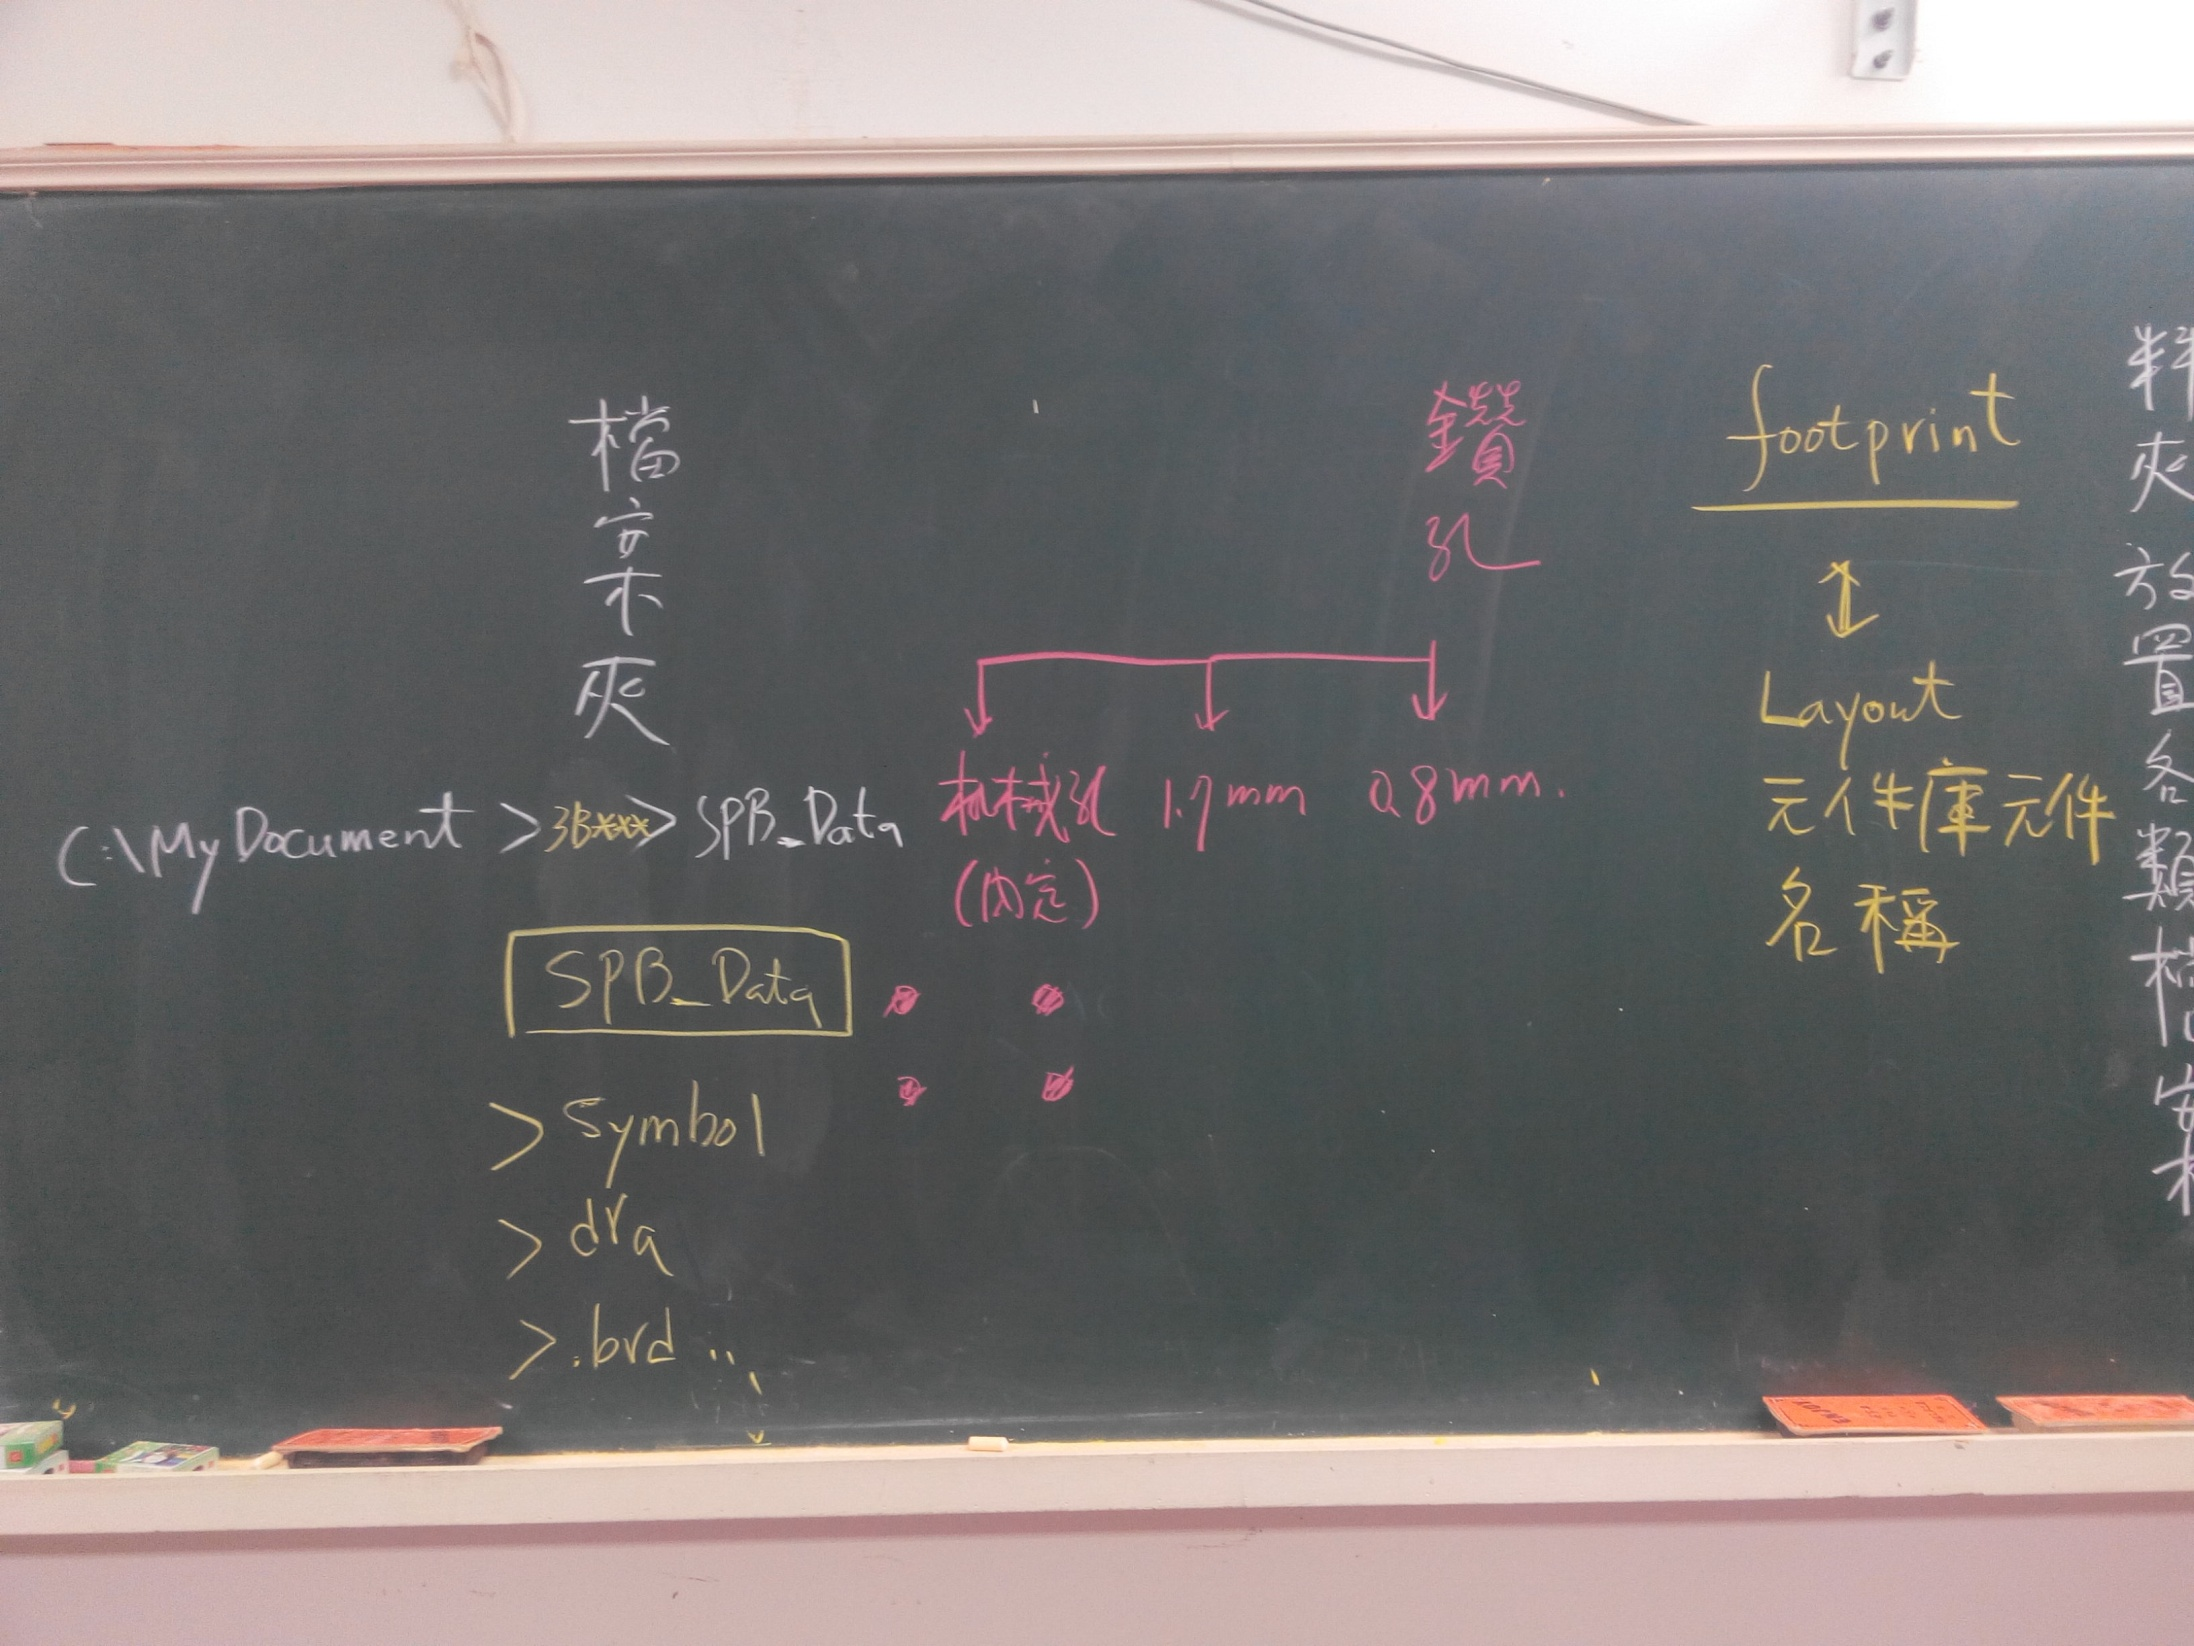 檔案夾
C:\My Document > 3B*** > SPB_Data
SPB_Data
> Symbol
> dra
> .brd ...
鑽孔
机械孔 1.7mm 0.8mm.
(內定)
footprint
Layout
元件庫元件
名稱
料夾放置各類檔案